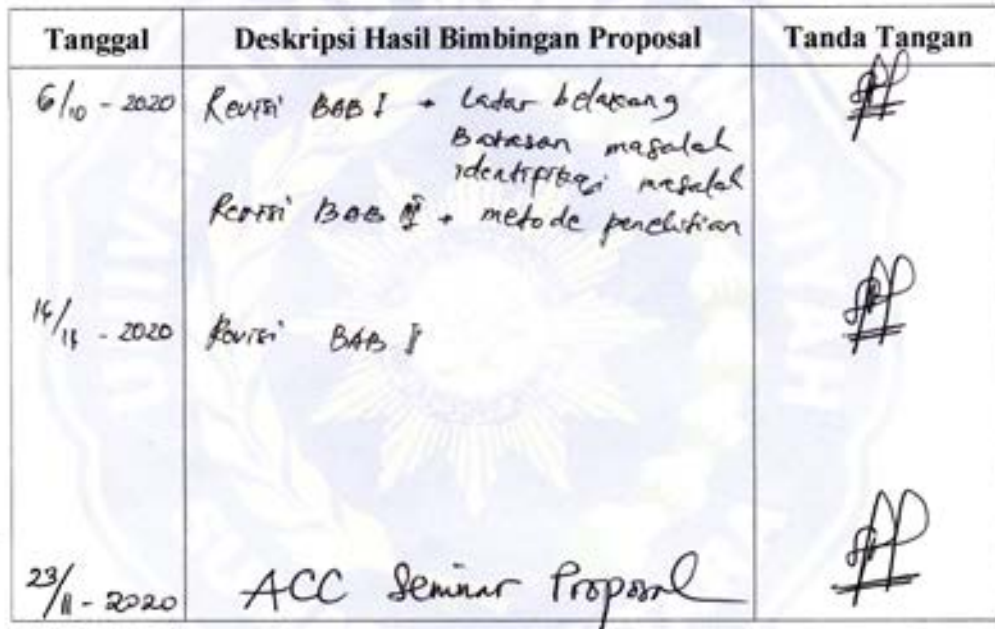 Tanggal Deskripsi Hasil Bimbingan Proposal Tanda Tangan
6/10 - 2020 Revisi BAB I → Latar belakang
Batasan masalah
identifikasi masalah
Revisi BAB → metode penelitian
- 2020 Revisi BAB
23/11 - 2020 ACC Seminar Proposal